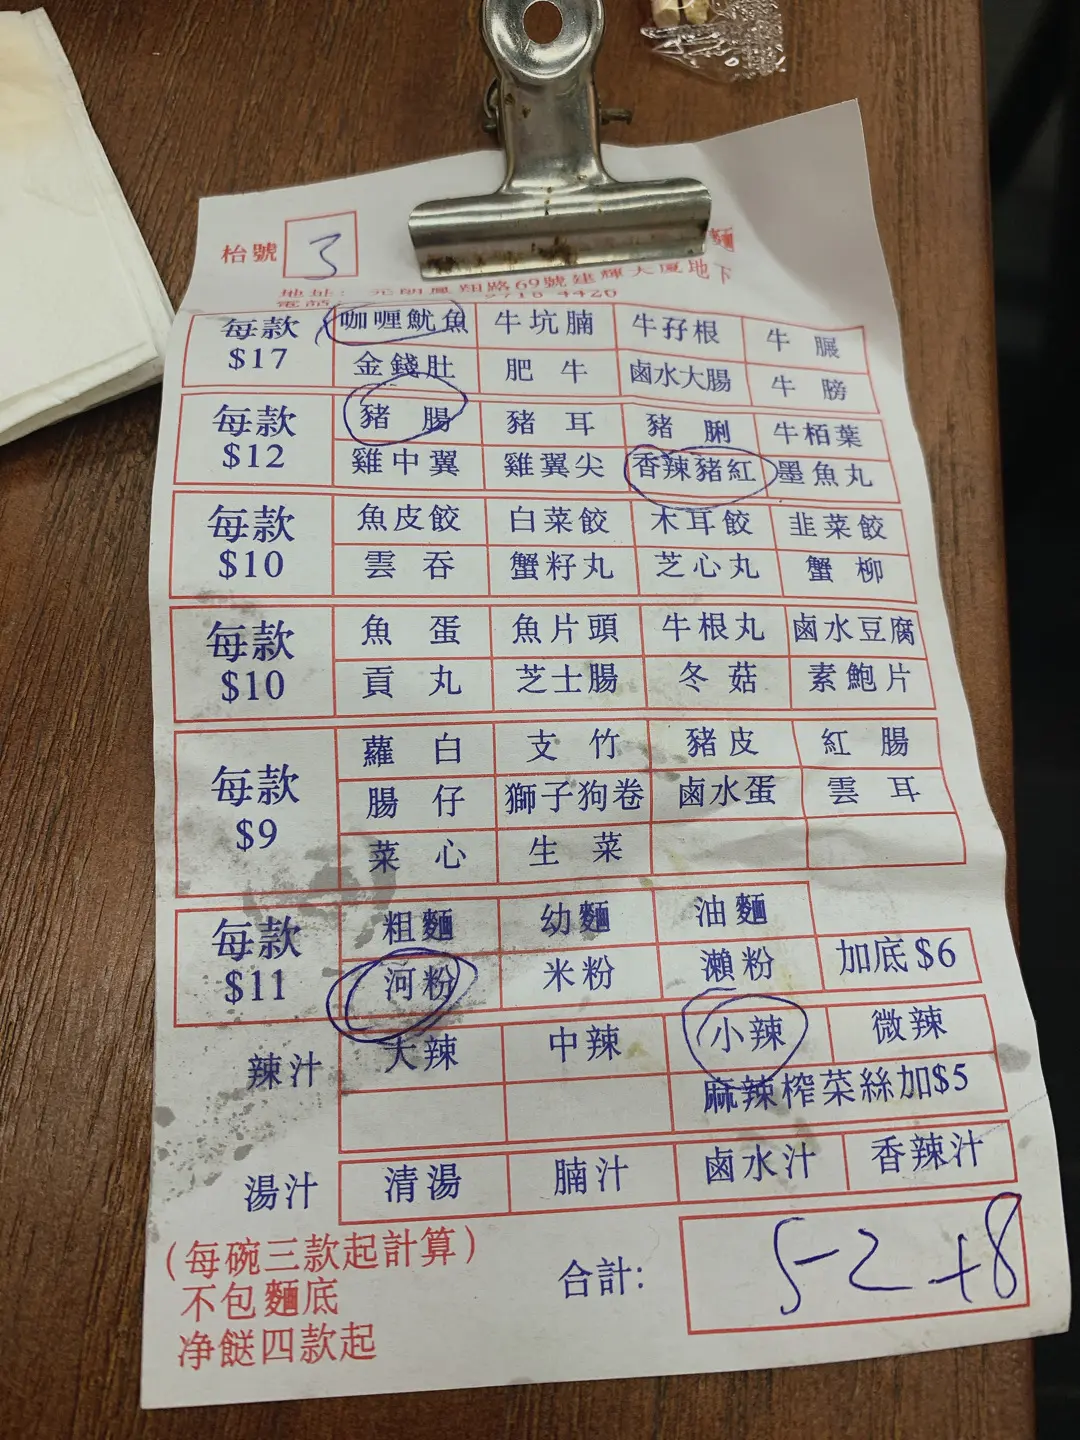 枱號 3
麵
地址: 元朗鳳翔路69號建輝大廈地下
電話: 4420
每款 $17 咖喱魷魚 牛坑腩 牛孖根 牛𦟌
金錢肚 肥牛 鹵水大腸 牛膀
每款 $12 豬腸 豬耳 豬脷 牛栢葉
雞中翼 雞翼尖 香辣豬紅 墨魚丸
每款 $10 魚皮餃 白菜餃 木耳餃 韭菜餃
雲吞 蟹籽丸 芝心丸 蟹柳
每款 $10 魚蛋 魚片頭 牛根丸 鹵水豆腐
貢丸 芝士腸 冬菇 素鮑片
每款 $9 蘿白 支竹 豬皮 紅腸
腸仔 獅子狗卷 鹵水蛋 雲耳
菜心 生菜
每款 $11 粗麵 幼麵 油麵
河粉 米粉 瀨粉 加底$6
辣汁 大辣 中辣 小辣 微辣
麻辣榨菜絲加$5
湯汁 清湯 腩汁 鹵水汁 香辣汁
(每碗三款起計算)
不包麵底
净餸四款起
合計: 52+8